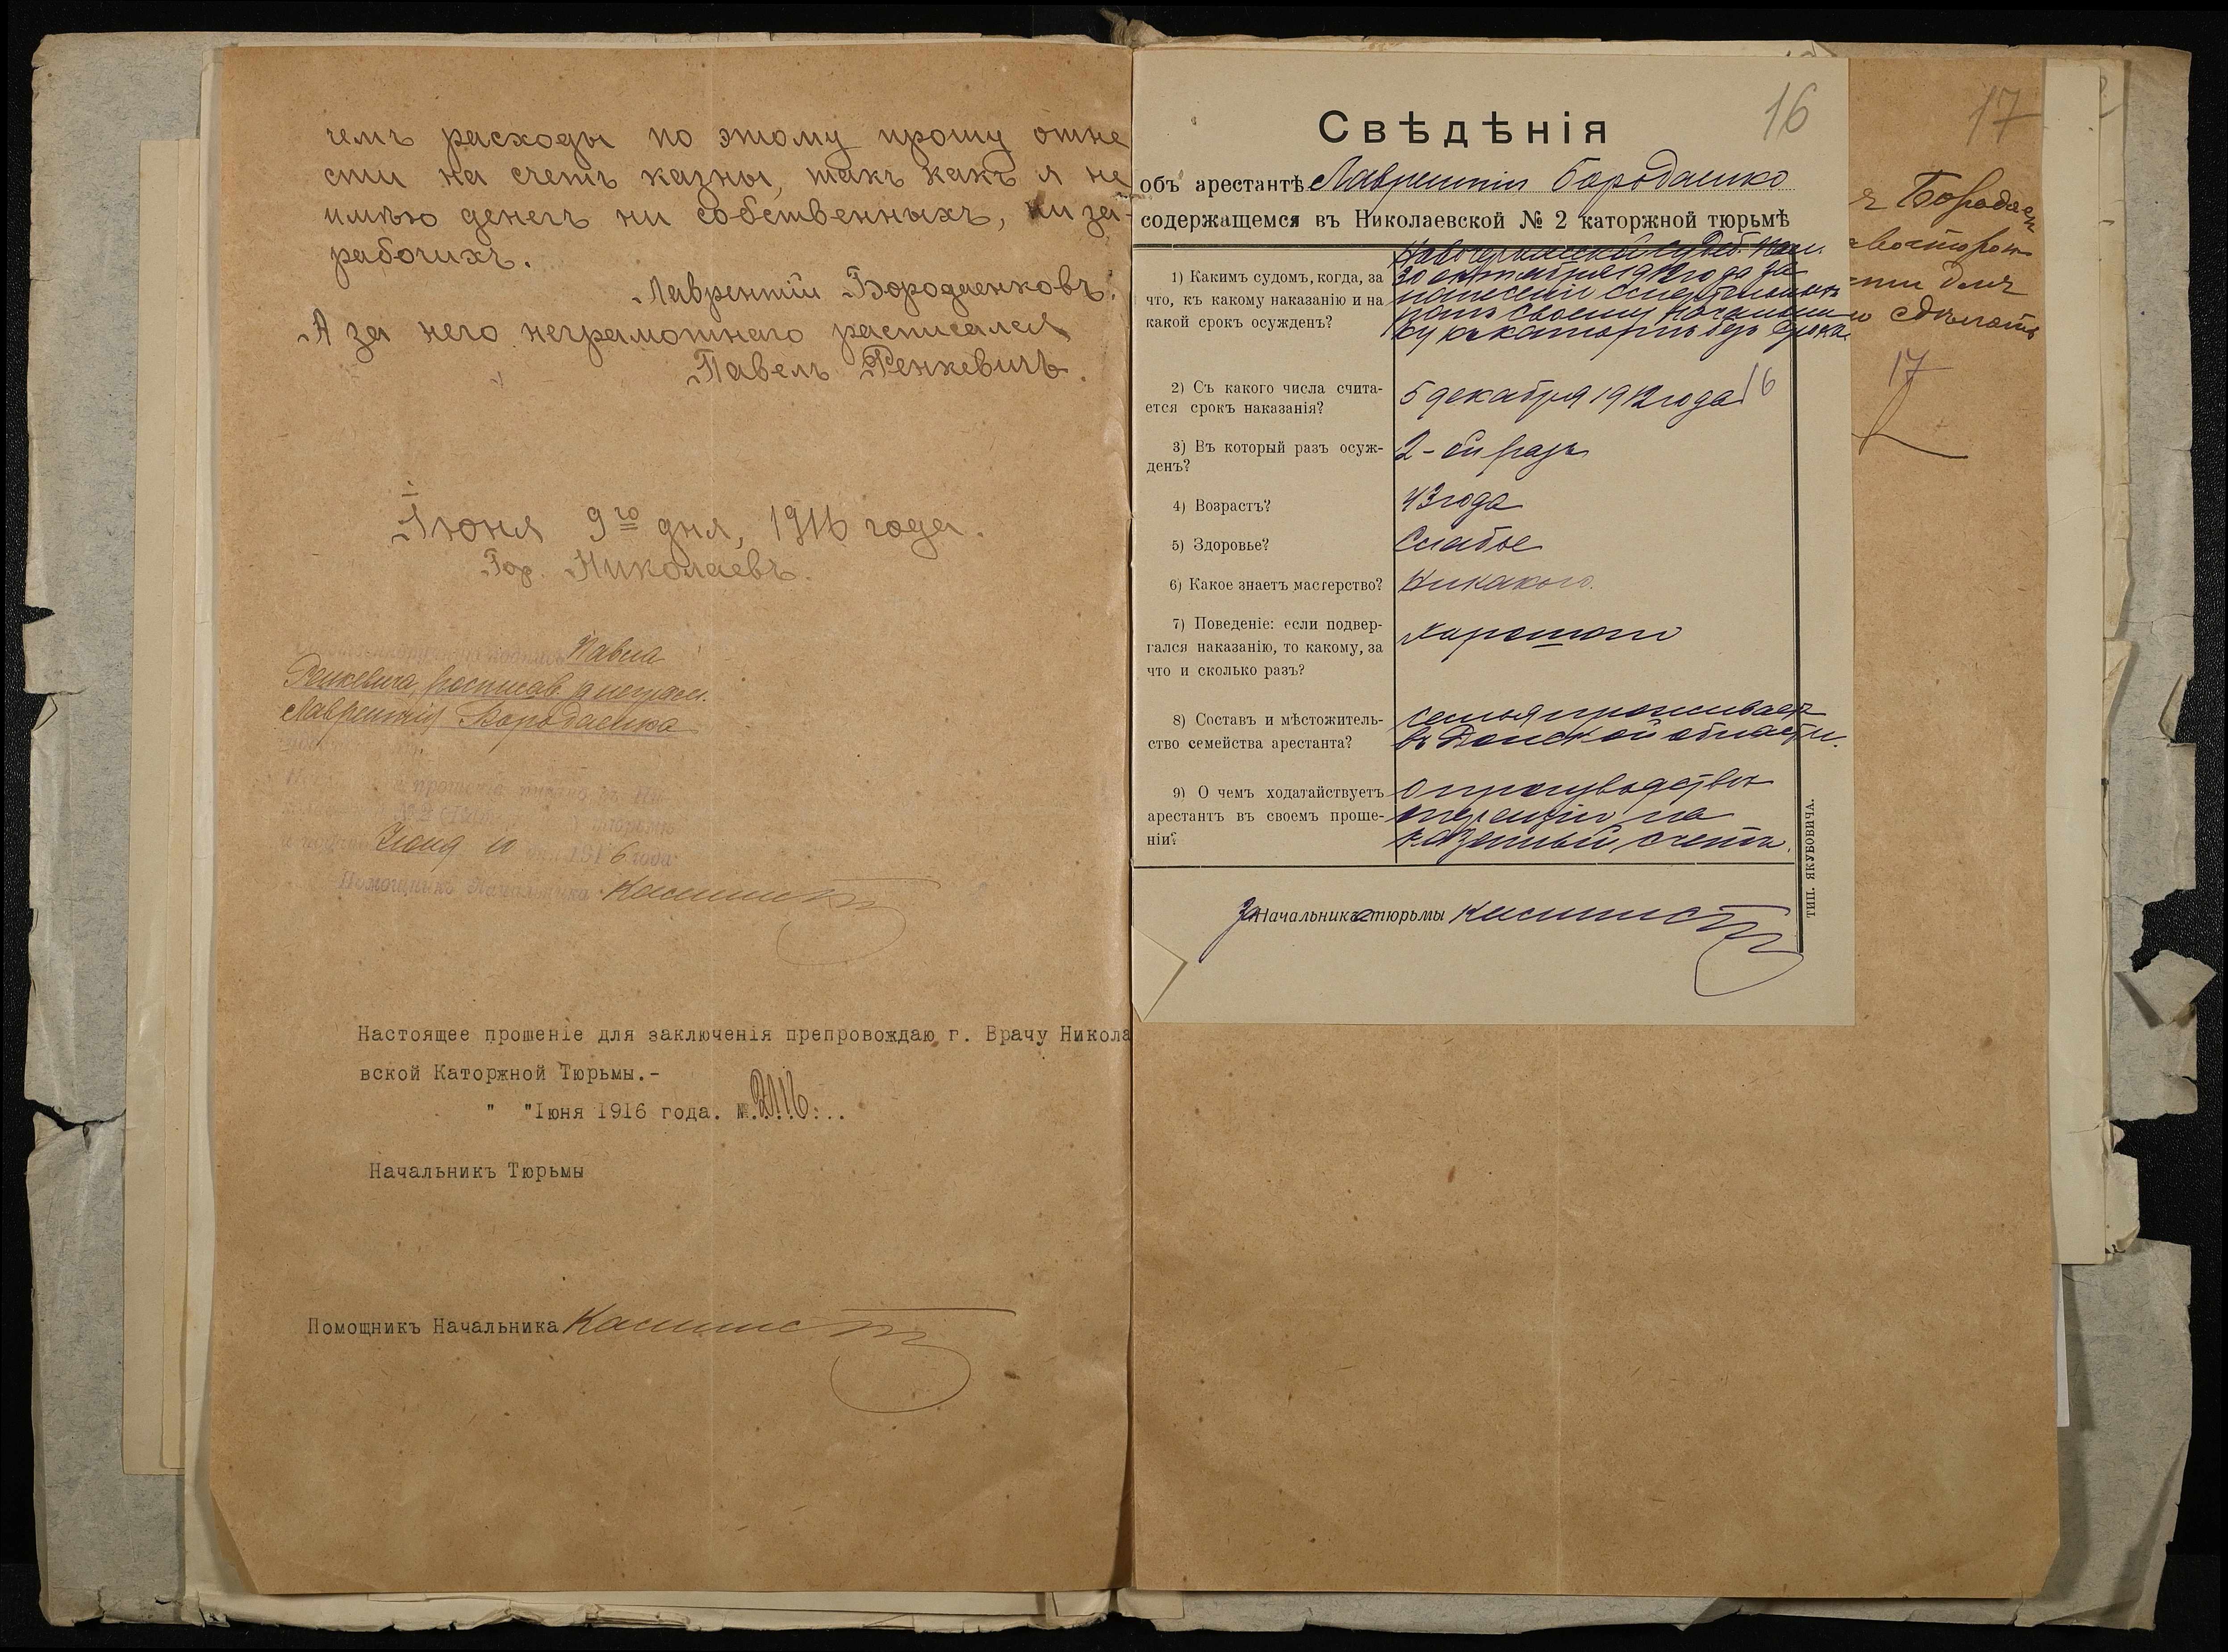 чемъ расходы по этому прошу отне
сти на счетъ казны, такъ какъ я не
имѣю денегъ ни собственныхъ, ни за-
рабочихъ.
Лаврентій Бородаенковъ.
А за него неграмотнаго расписался
Павелъ Ренкевичъ.
Іюня 9го дня, 1916 года.
Гор. Николаевъ.
Павла
Ренкевича, росписав. за неграм.
Лаврентія Бородаенка
прошеніе
№2
тюрьмѣ
Іюня 10 дня 1916 года
Помощникъ Начальника
Настоящее прошеніе для заключенія препровождаю г. Врачу Никола
вской Каторжной Тюрьмы.-
" "Іюня 1916 года. № 2116
Начальникъ Тюрьмы
Помощникъ Начальника
16
Свѣдѣнія
объ арестантѣ Лаврентіи Бородаенко
содержащемся въ Николаевской № 2 каторжной тюрьмѣ
1) Какимъ судомъ, когда, за
что, къ какому наказанію и на
какой срокъ осужденъ?
Новочеркасской судеб. Пал.
30 октября 1912 года за
нанесеніе
ранъ своему начальни
ку къ каторгѣ безъ срока
2) Съ какого числа счита-
ется срокъ наказанія?
5 декабря 1912 года
16
3) Въ который разъ осуж-
денъ?
2-ой разъ
4) Возрастъ?
43 года
5) Здоровье?
Слабое
6) Какое знаетъ мастерство?
Никакого.
7) Поведеніе: если подвер-
гался наказанію, то какому, за
что и сколько разъ?
Хорошаго
8) Составъ и мѣстожитель-
ство семейства арестанта?
Семья проживаетъ
въ Донской области.
9) О чемъ ходатайствуетъ
арестантъ въ своемъ проше-
ніи?
О производствѣ
операціи на
казенный счетъ.
За Начальника тюрьмы
ТИП. ЯКУБОВИЧА.
17
Бородаен
сдѣлать
17